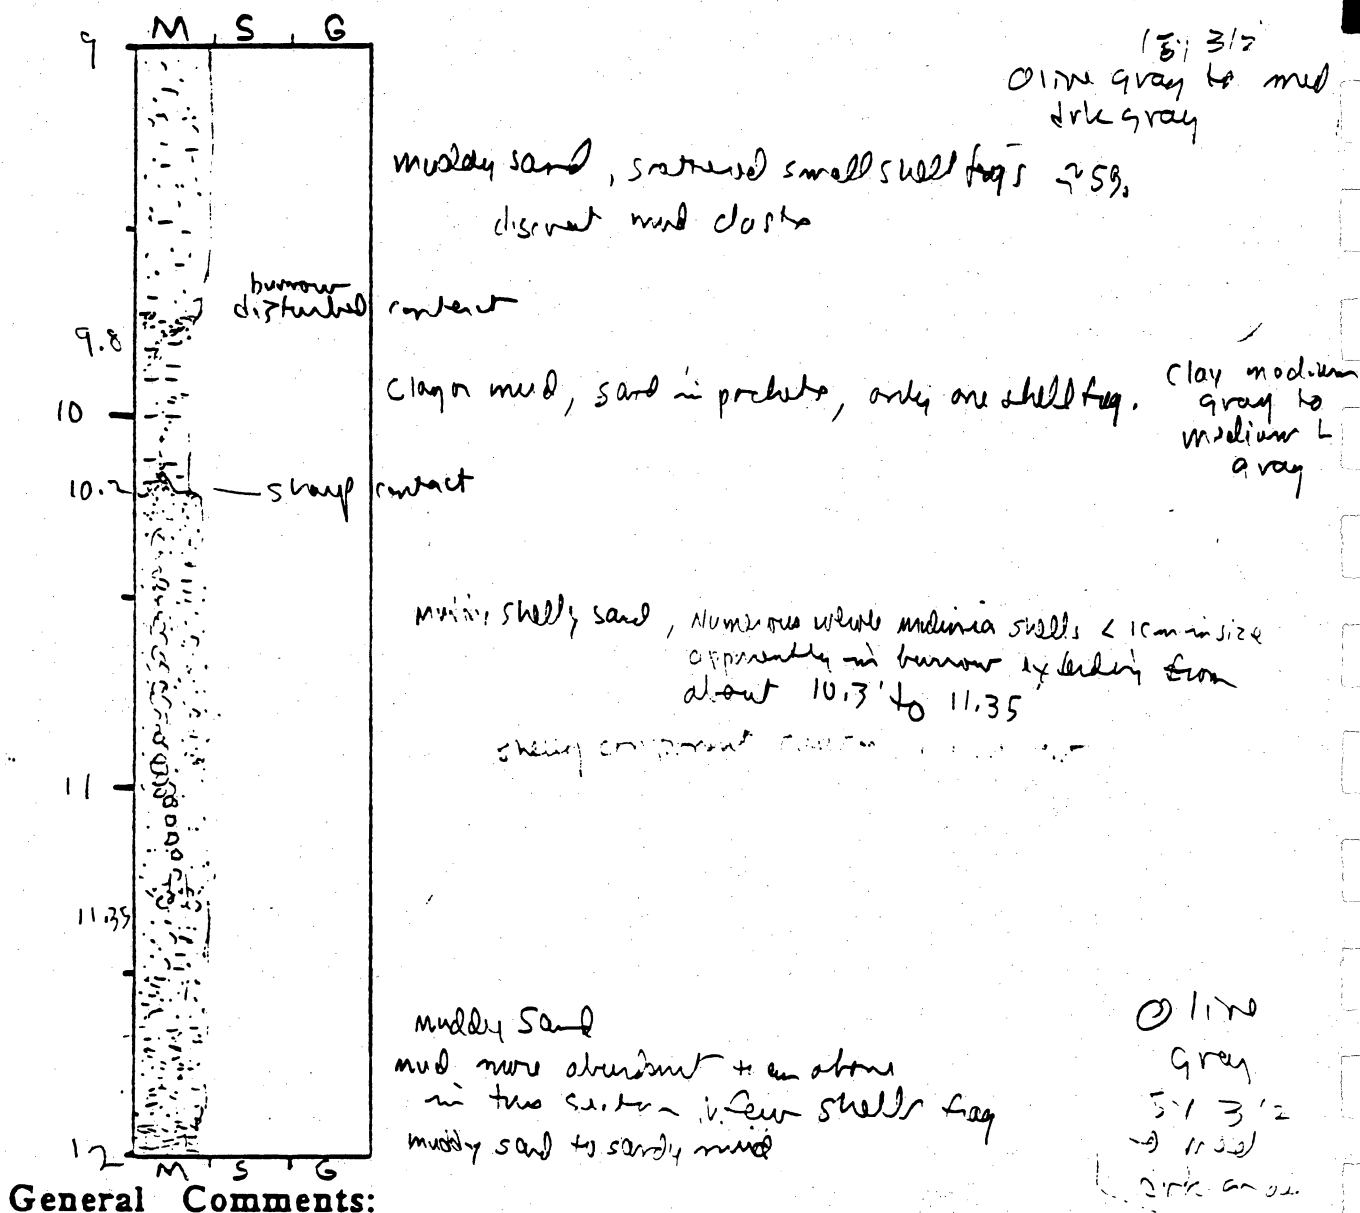 M S G
9
5y 3/2
Olive gray to med
drk gray
muddy sand, scattered small shell frags ~5%
discreet mud clasts
burrow
disturbed contact
9.8
Clay or mud, sand in pockets, only one shell frag.
Clay medium
gray to
medium L
gray
10
10.2
sharp contact
shelly sand, Numerous whole mulinia shells < 1cm in size
apparently in burrow extending from
about 10.3' to 11.35'
shelly component
11
11.35
muddy sand
mud more abundant than above
in this section, few shells frag
muddy sand to sandy mud
Olive
Gray
5y 3/2
med
drk gray
12
M S G
General Comments: